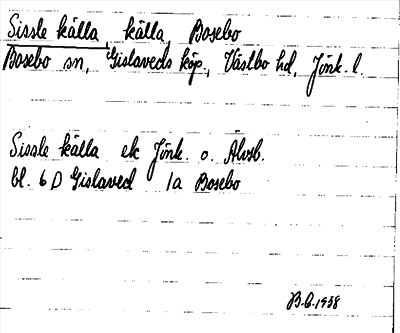 Sissle källa, källa, Bosebo
Bosebo sn, Gislaveds köp., Västbo hd, Jönk. l.
Sissle källa ek Jönk. o. Älvsb.
bl. 6 D Gislaved 1a Bosebo
B.E. 1938